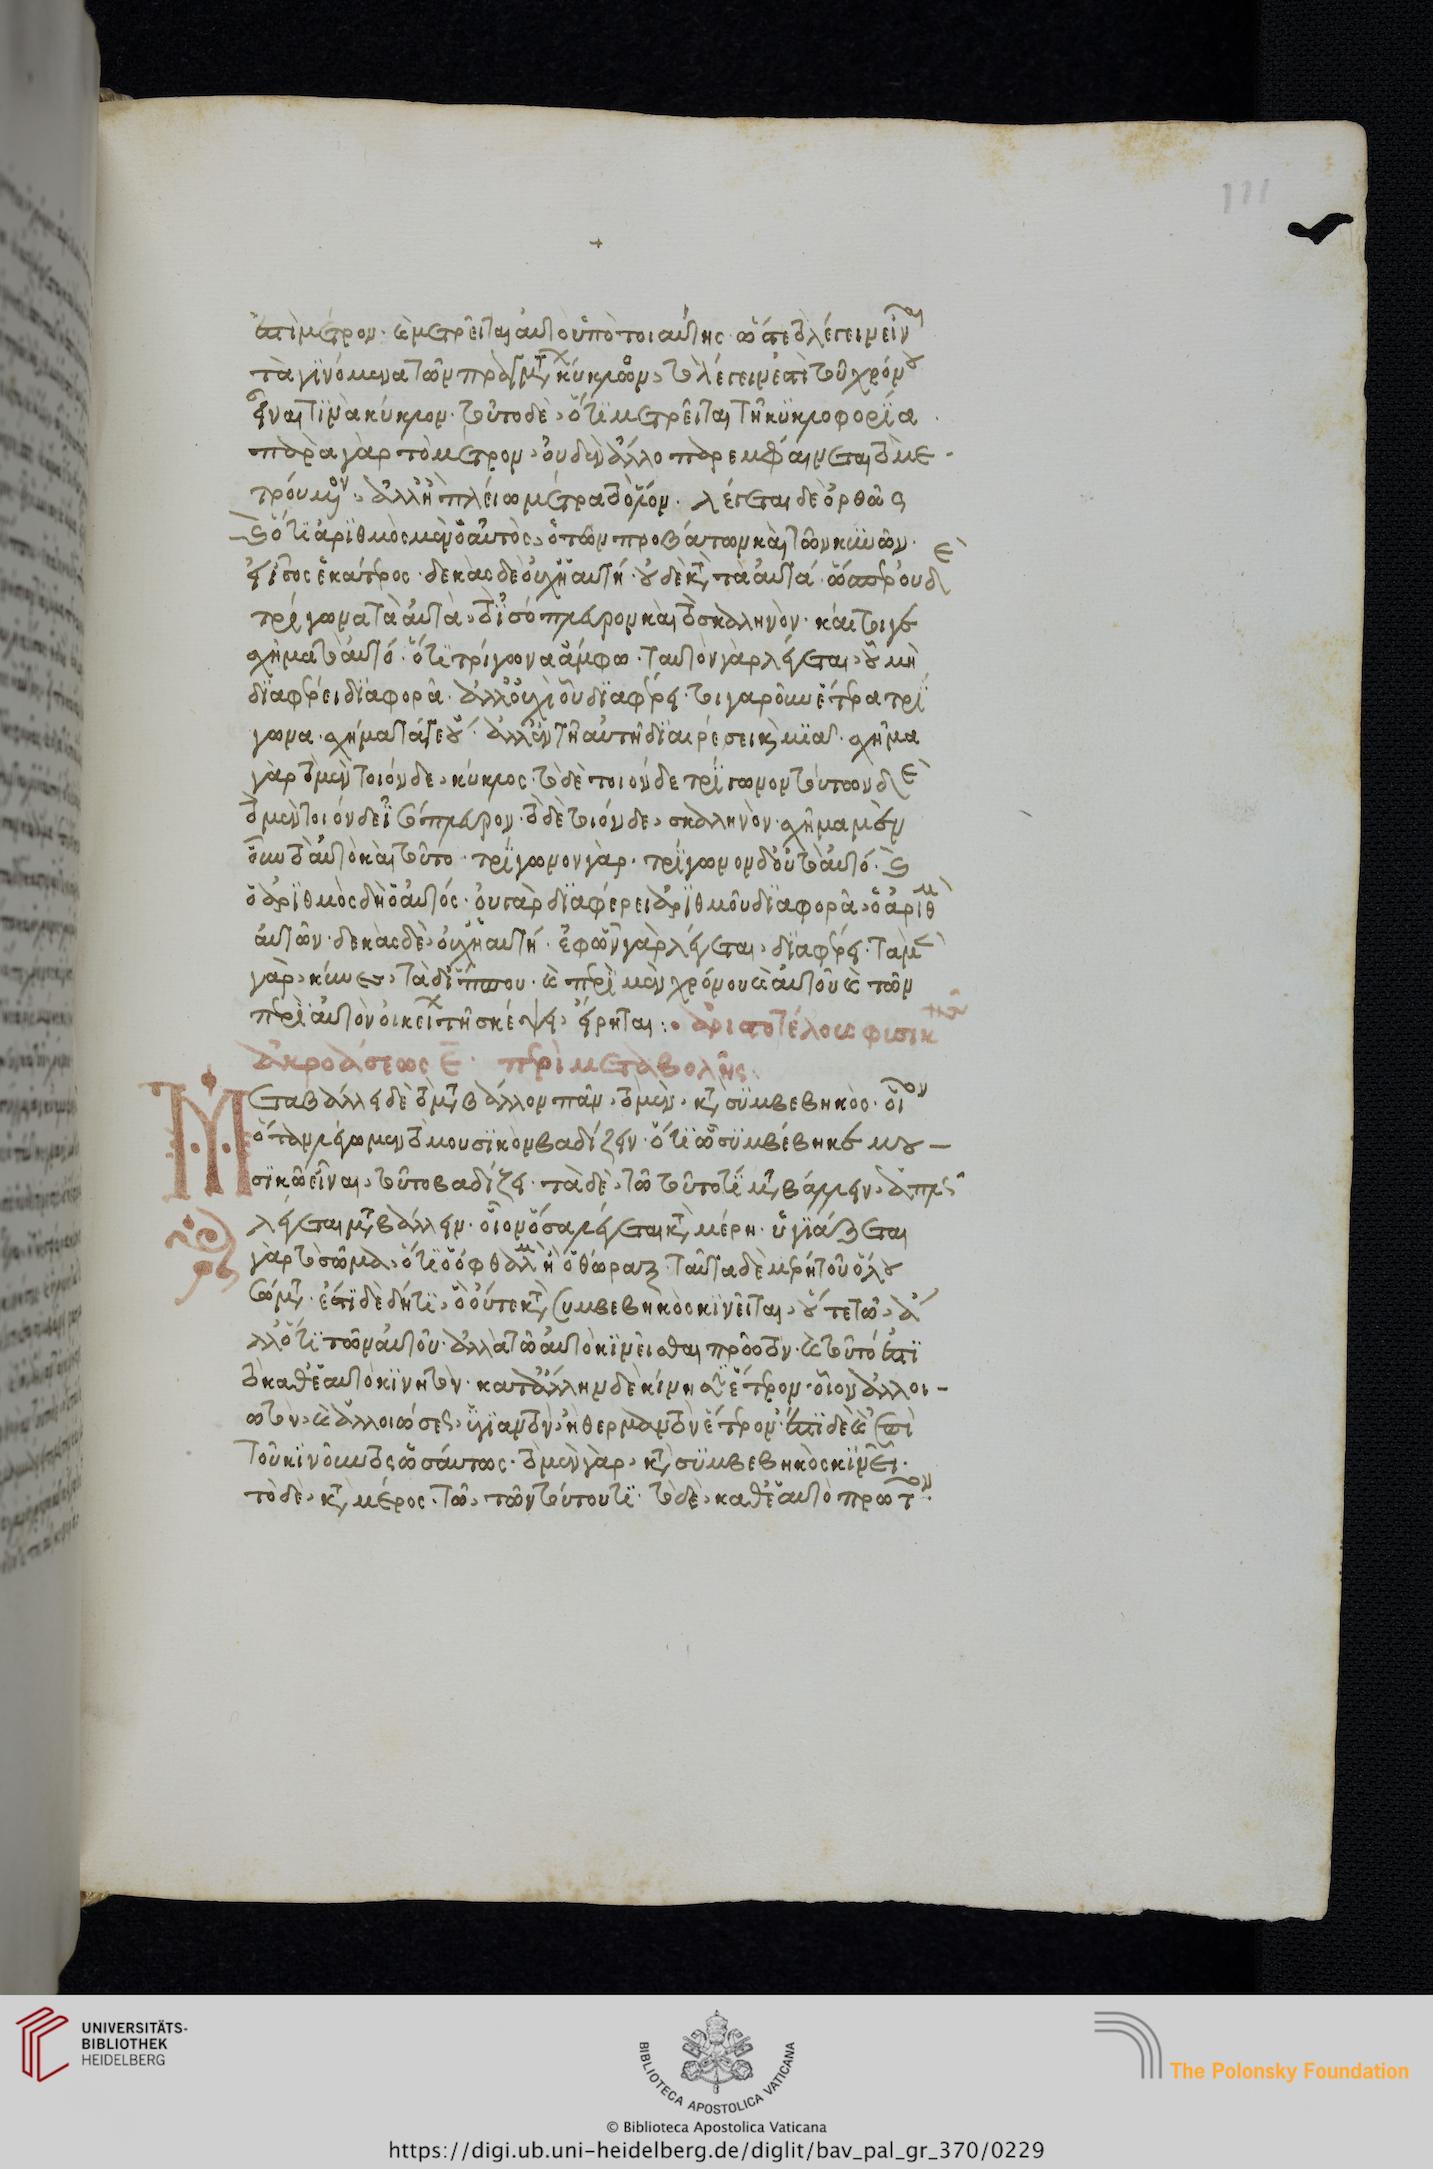 ἐστὶ μέτρον· καὶ μετρεῖται αὐτὸ ὑπὸ τοιαύτης· ὥστε τὸ λέγειν εἶναι
τὰ γϊνόμενα τῶν πραγμάτων κύκλον, τὸ λέγειν ἐστὶ τοῦ χρόνου
εἶναι τϊνὰ κύκλον· τοῦτο δὲ, ὅτϊ μετρεῖται τῆ κϋκλοφορΐα
παρὰ γὰρ τὸ μέτρον, οὐδὲν ἄλλο παρεμφαίνεται τὸ με-
τρούμενον, ἀλλ' ἢ πλείω μέτρα τὸ ὅλον. λέγεται δὲ ὀρθῶς
καὶ ὅτϊ ἀρϊθμὸς μὲν ὁ αὐτὸς, ὁ τῶν προβάτων καὶ τῶν κϋνῶν.
εἰ ἴσος ἑκάτερος· δεκὰς δὲ οὐχ ἡ αὐτή· οὐδὲ δέκα τὰ αὐτά· ὥσπερ οὐδὲ
τρίγωνα τὰ αὐτὰ, τὸ ἰσόπλευρον καὶ τὸ σκαληνὸν· καίτοι γε
σχῆμα τὸ αὐτό· ὅτϊ τρίγωνα ἄμφω· ταυτὸν γὰρ λέγεται, οὗ μὴ
δϊαφέρει δϊαφορᾶ· ἀλλ' οὐχὶ οὗ δϊαφέρει· τοιγαροῦν ἕτερα τρί
γωνα· σχήματα δὲ οὔ· ἀλλ' ἐν τῆ αὐτῆ δϊαιρέσει καὶ μϊᾶ· σχῆμα
γὰρ τὸ μὲν τοιόνδε, κύκλος· τὸ δὲ τοιόνδε τρίγωνον τούτων δὲ
τὸ μὲν τοιόνδε ἰσόπλευρον· τὸ δὲ τοιόνδε, σκαληνὸν· σχῆμα μὲν
οὖν τὸ αὐτὸ καὶ τοῦτο· τρίγωνον γὰρ· τρίγωνον δ' οὐ τὸ αὐτό· καὶ
ὁ ἀρϊθμὸς δὴ ὁ αὐτός· οὐ γὰρ δϊαφέρει ἀρϊθμοῦ δϊαφορᾶ, ὁ ἀριθμὸς
αὐτῶν· δεκὰς δὲ, οὐχ ἡ αὐτή· ἐφ' ὧν γὰρ λέγεται, δϊαφέρει· τὰ μὲν
γὰρ, κύνες, τὰ δ' ἵπποι· καὶ περὶ μὲν χρόνου καὶ αὐτοῦ καὶ τῶν
περὶ αὐτὸν οἰκείων τῆ σκέψει, εἴρηται:· ἀριστοτέλους φυσικῆς
ἀκροάσεως ε̄· περὶ μεταβολῆς:
Μεταβάλλει δὲ τὸ μεταβάλλον πᾶν· τὸ μὲν, κατὰ σϋμβεβηκὸς· οἷον
ὅταν λέγωμεν τὸ μουσϊκὸν βαδίζειν· ὅτϊ ὧ σϋμβέβηκε μου-
σϊκῶ εἶναι, τοῦτο βαδίζει· τὰ δὲ, τῶ τούτου τϊ μεταβάλλειν, ἁπλῶς
λέγεται μεταβάλλειν· οἷον ὅσα λέγεται κατὰ μέρη· ὑγϊάζεται
γὰρ τὸ σῶμα, ὅτϊ ὁ ὀφθαλμὸς ἢ ὁ θώραξ· ταῦτα δὲ μέρη τοῦ ὅλου
σώματος· ἔστϊ δὲ δή τϊ, ὃ οὔτε κατὰ συμβεβηκὸς κϊνεῖται, οὔτε τῶ, ἄ
λλό τϊ τῶν αὐτοῦ· ἀλλὰ τῶ αὐτὸ κϊνεῖσθαι πρῶτον· καὶ τοῦτό ἐστϊ
τὸ καθ' ἑαυτὸ κϊνητόν· κατ' ἄλλην δὲ κίνησιν ἕτερον· οἷον ἀλλοι-
ωτόν, καὶ ἀλλοιώσεως, ὑγϊαντὸν, ἢ θερμαντὸν ἕτερον· ἔστϊ δὲ καὶ ἐπὶ
τοῦ κϊνοῦντος ὡσαύτως· τὸ μὲν γὰρ, κατὰ σϋμβεβηκὸς κϊνεῖ·
τὸ δὲ, κατὰ μέρος· τῶ, τῶν τούτου τϊ· τὸ δὲ, καθ' ἑαυτὸ πρῶτον·
111
UNIVERSITÄTS-
BIBLIOTHEK
HEIDELBERG
BIBLIOTECA APOSTOLICA VATICANA
© Biblioteca Apostolica Vaticana
The Polonsky Foundation
https://digi.ub.uni-heidelberg.de/diglit/bav_pal_gr_370/0229